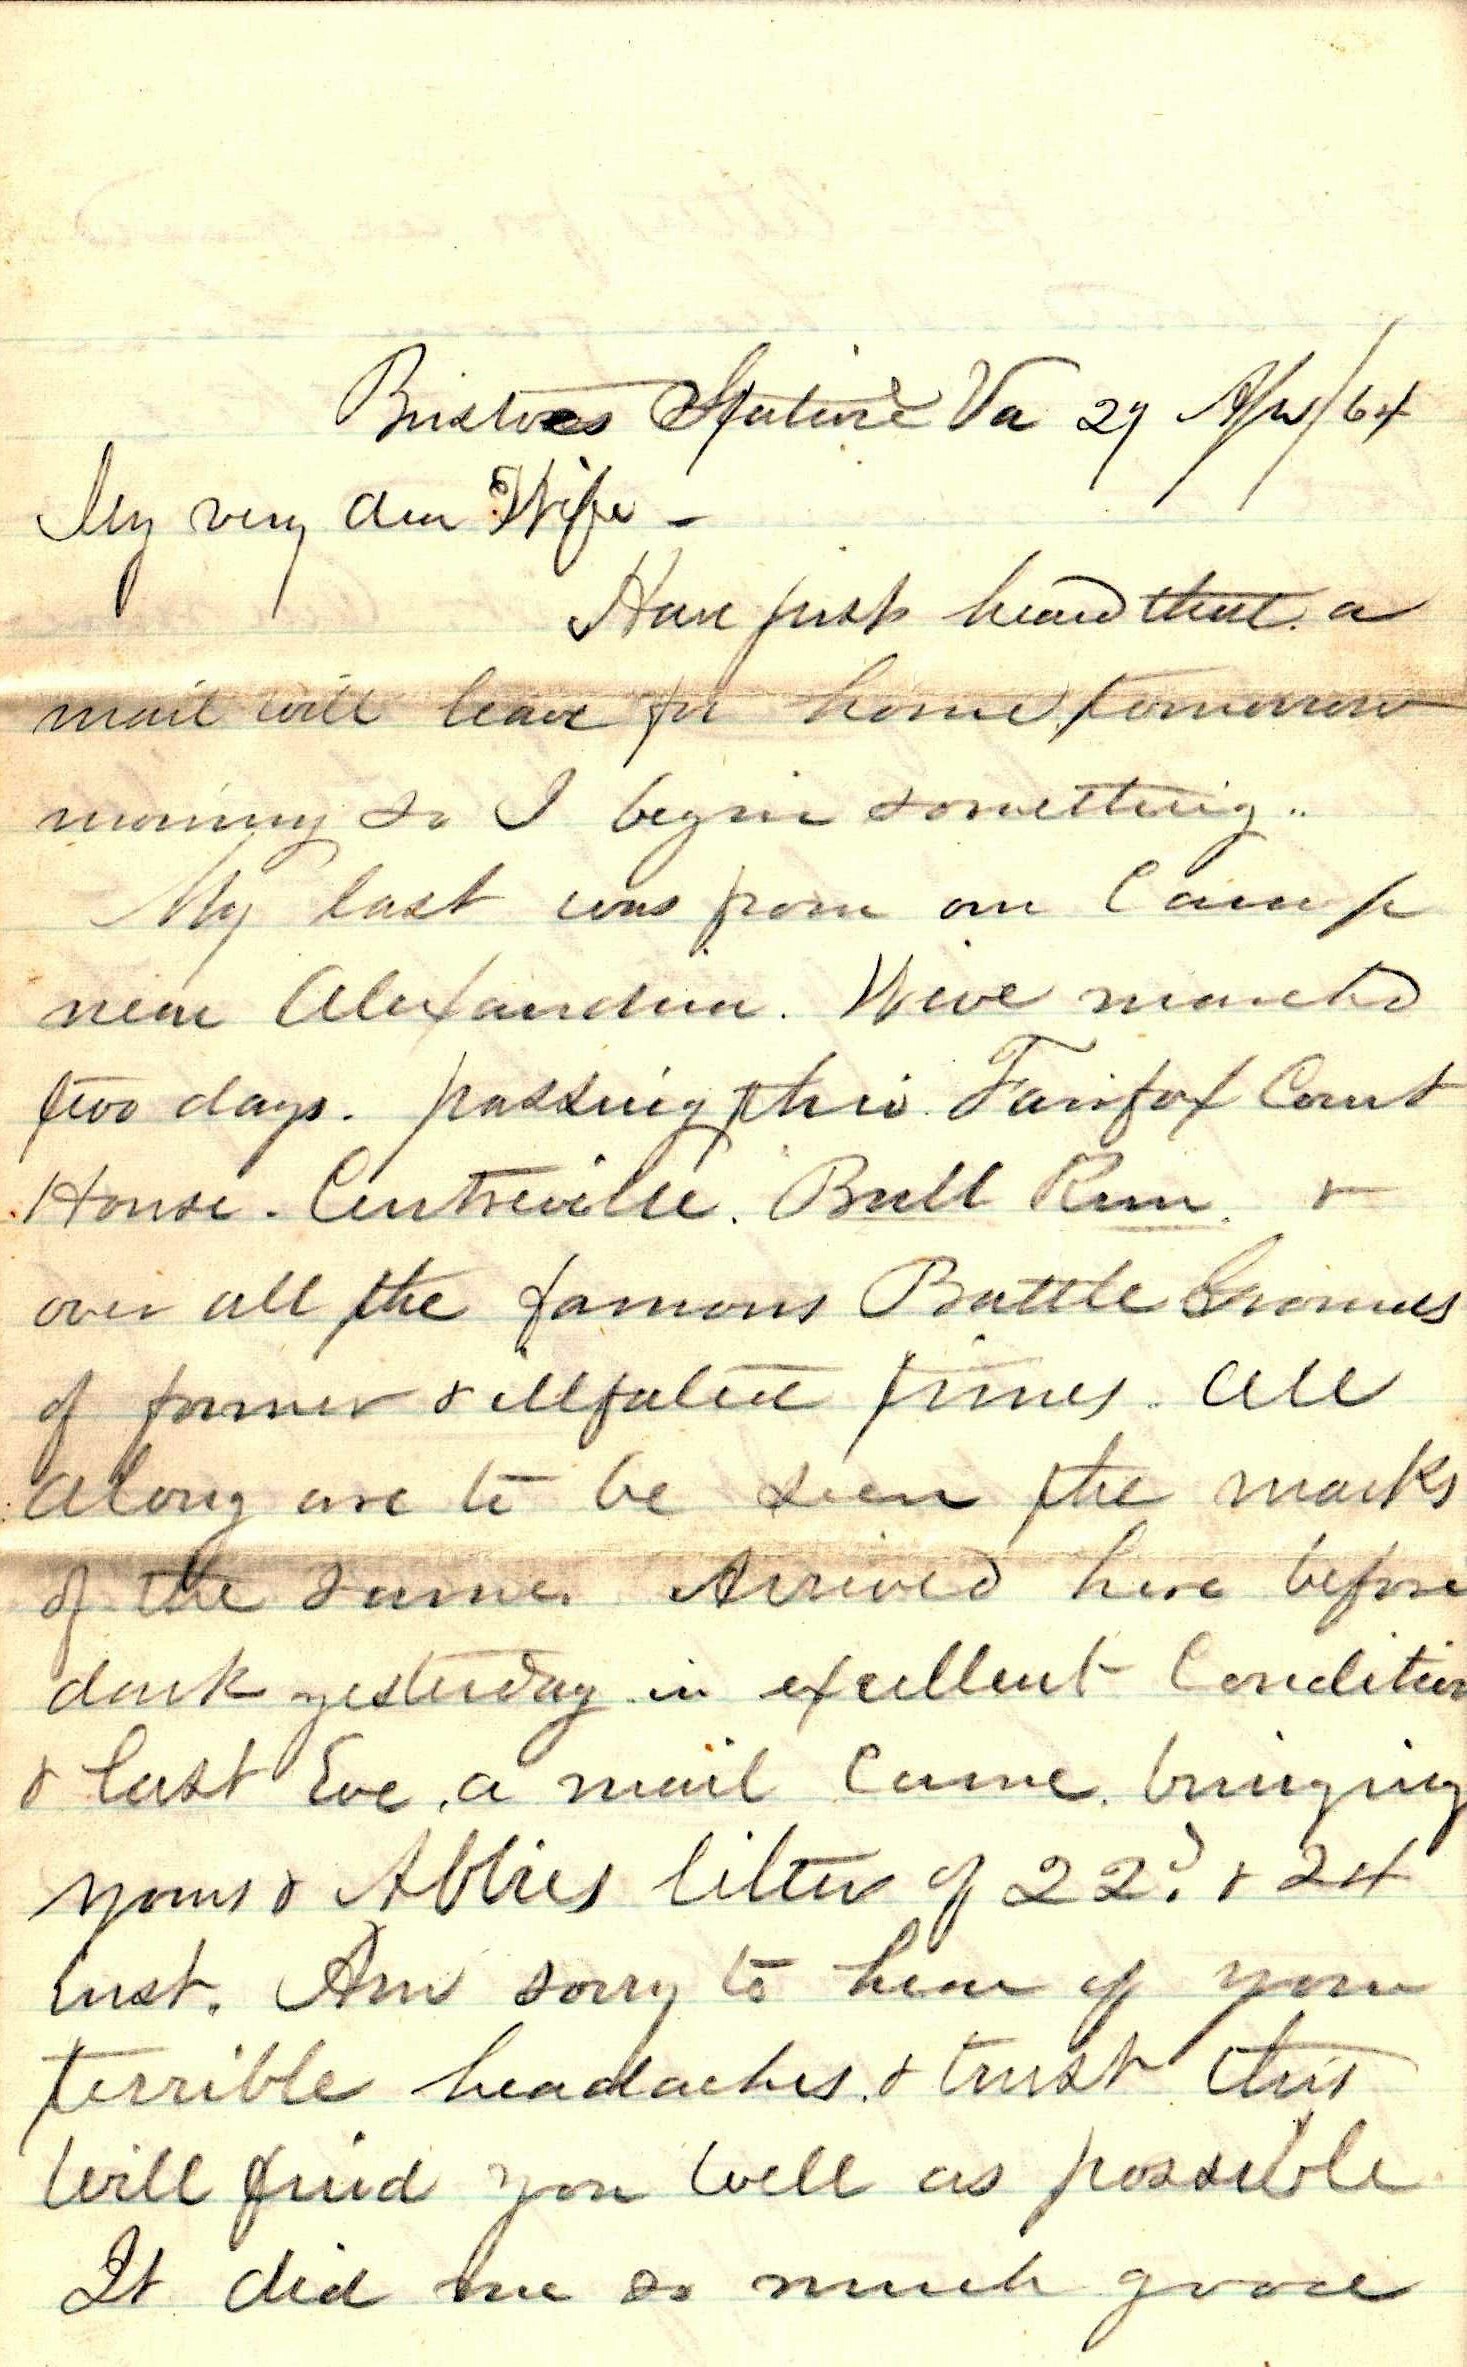 Bristoes Station Va 29 Apr/64
My very dear Wife -
Have just heard that a
mail will leave for home tomorrow
morning so I begin something..
My last was from our Camp
near Alexandria. We've marched
two days. passing thro. Fairfax Court
House. Centreville. Bull Run. &
over all the famous Battle Grounds
of former & illfated times. All
along are to be seen the marks
of the same. Arrived here before
dark yesterday in excellent Condition
& last Eve. a mail Came. bringing
yours & Abbies letter of 22d & 24
inst. Am sorry to hear of your
terrible headaches. & trust this
will find you well as possible
It did me so much good